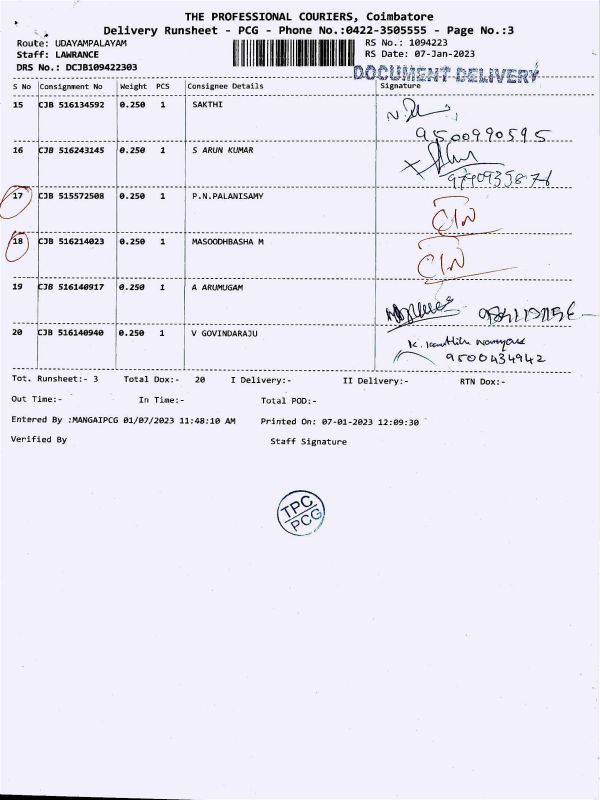 THE PROFESSIONAL COURIERS, Coimbatore
Delivery Runsheet - PCG - Phone No.:0422-3505555 - Page No.:3
Route: UDAYAMPALAYAM RS No.: 1094223
Staff: LAWRANCE RS Date: 07-Jan-2023
DRS No.: DCJB109422303 DOCUMENT DELIVERY
S No Consignment No Weight PCS Consignee Details Signature
15 CJB 516134592 0.250 1 SAKTHI
9500990595
16 CJB 516243145 0.250 1 S ARUN KUMAR
17 CJB 515572508 0.250 1 P.N.PALANISAMY
18 CJB 516214023 0.250 1 MASOODHBASHA M
19 CJB 516140917 0.250 1 A ARUMUGAM
20 CJB 516140940 0.250 1 V GOVINDARAJU
9500434942
Tot. Runsheet:- 3 Total Dox:- 20 I Delivery:- II Delivery:- RTN Dox:-
Out Time:- In Time:- Total POD:-
Entered By :MANGAIPCG 01/07/2023 11:48:10 AM Printed On: 07-01-2023 12:09:30
Verified By Staff Signature
TPC
PCG